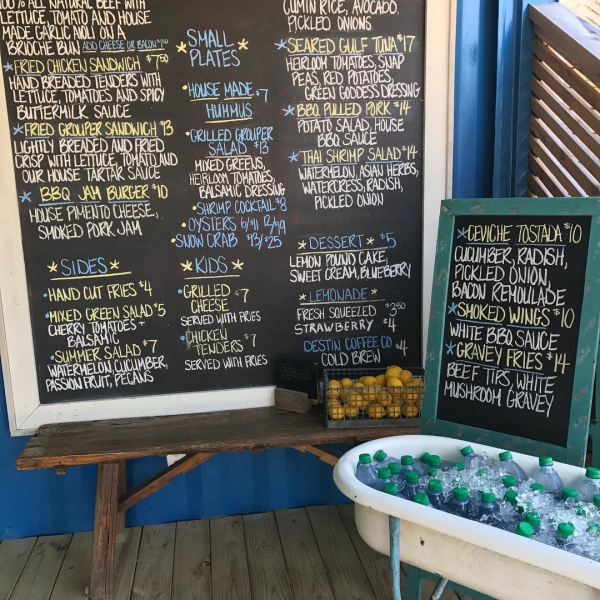 100% ALL NATURAL BEEF WITH
LETTUCE, TOMATO AND HOUSE
MADE GARLIC AIOLI ON A
BRIOCHE BUN ADD CHEESE OR BACON
* FRIED CHICKEN SANDWICH $7.50
HAND BREADED TENDERS WITH
LETTUCE, TOMATOES AND SPICY
BUTTERMILK SAUCE
* FRIED GROUPER SANDWICH $13
LIGHTLY BREADED AND FRIED
CRISP WITH LETTUCE, TOMATO, AND
OUR HOUSE TARTAR SAUCE
* BBQ JAM BURGER $10
HOUSE PIMENTO CHEESE,
SMOKED PORK JAM
* SIDES *
• HAND CUT FRIES $4
• MIXED GREEN SALAD $5
CHERRY TOMATOES +
BALSAMIC
• SUMMER SALAD $7
WATERMELON, CUCUMBER,
PASSION FRUIT, PECANS
* SMALL *
PLATES
• HOUSE MADE $7
HUMMUS
• GRILLED GROUPER
SALAD $13
MIXED GREENS,
HEIRLOOM TOMATOES,
BALSAMIC DRESSING
• SHRIMP COCKTAIL $8
• OYSTERS 6/$11 12/$19
• SNOW CRAB $13/$25
* KIDS *
• GRILLED $7
CHEESE
SERVED WITH FRIES
• CHICKEN $7
TENDERS
SERVED WITH FRIES
CUMIN RICE, AVOCADO,
PICKLED ONIONS
* SEARED GULF TUNA $17
HEIRLOOM TOMATOES, SNAP
PEAS, RED POTATOES,
GREEN GODDESS DRESSING
* BBQ PULLED PORK $14
POTATO SALAD, HOUSE
BBQ SAUCE
* THAI SHRIMP SALAD $14
WATERMELON, ASIAN HERBS,
WATERCRESS, RADISH,
PICKLED ONION
* DESSERT * $5
LEMON POUND CAKE,
SWEET CREAM, BLUEBERRY
* LEMONADE *
FRESH SQUEEZED $3.50
STRAWBERRY $4
DESTIN COFFEE CO $4
COLD BREW
* CEVICHE TOSTADA $10
CUCUMBER, RADISH,
PICKLED ONION,
BACON REMOULADE
* SMOKED WINGS $10
WHITE BBQ SAUCE
* GRAVEY FRIES $14
BEEF TIPS, WHITE
MUSHROOM GRAVEY